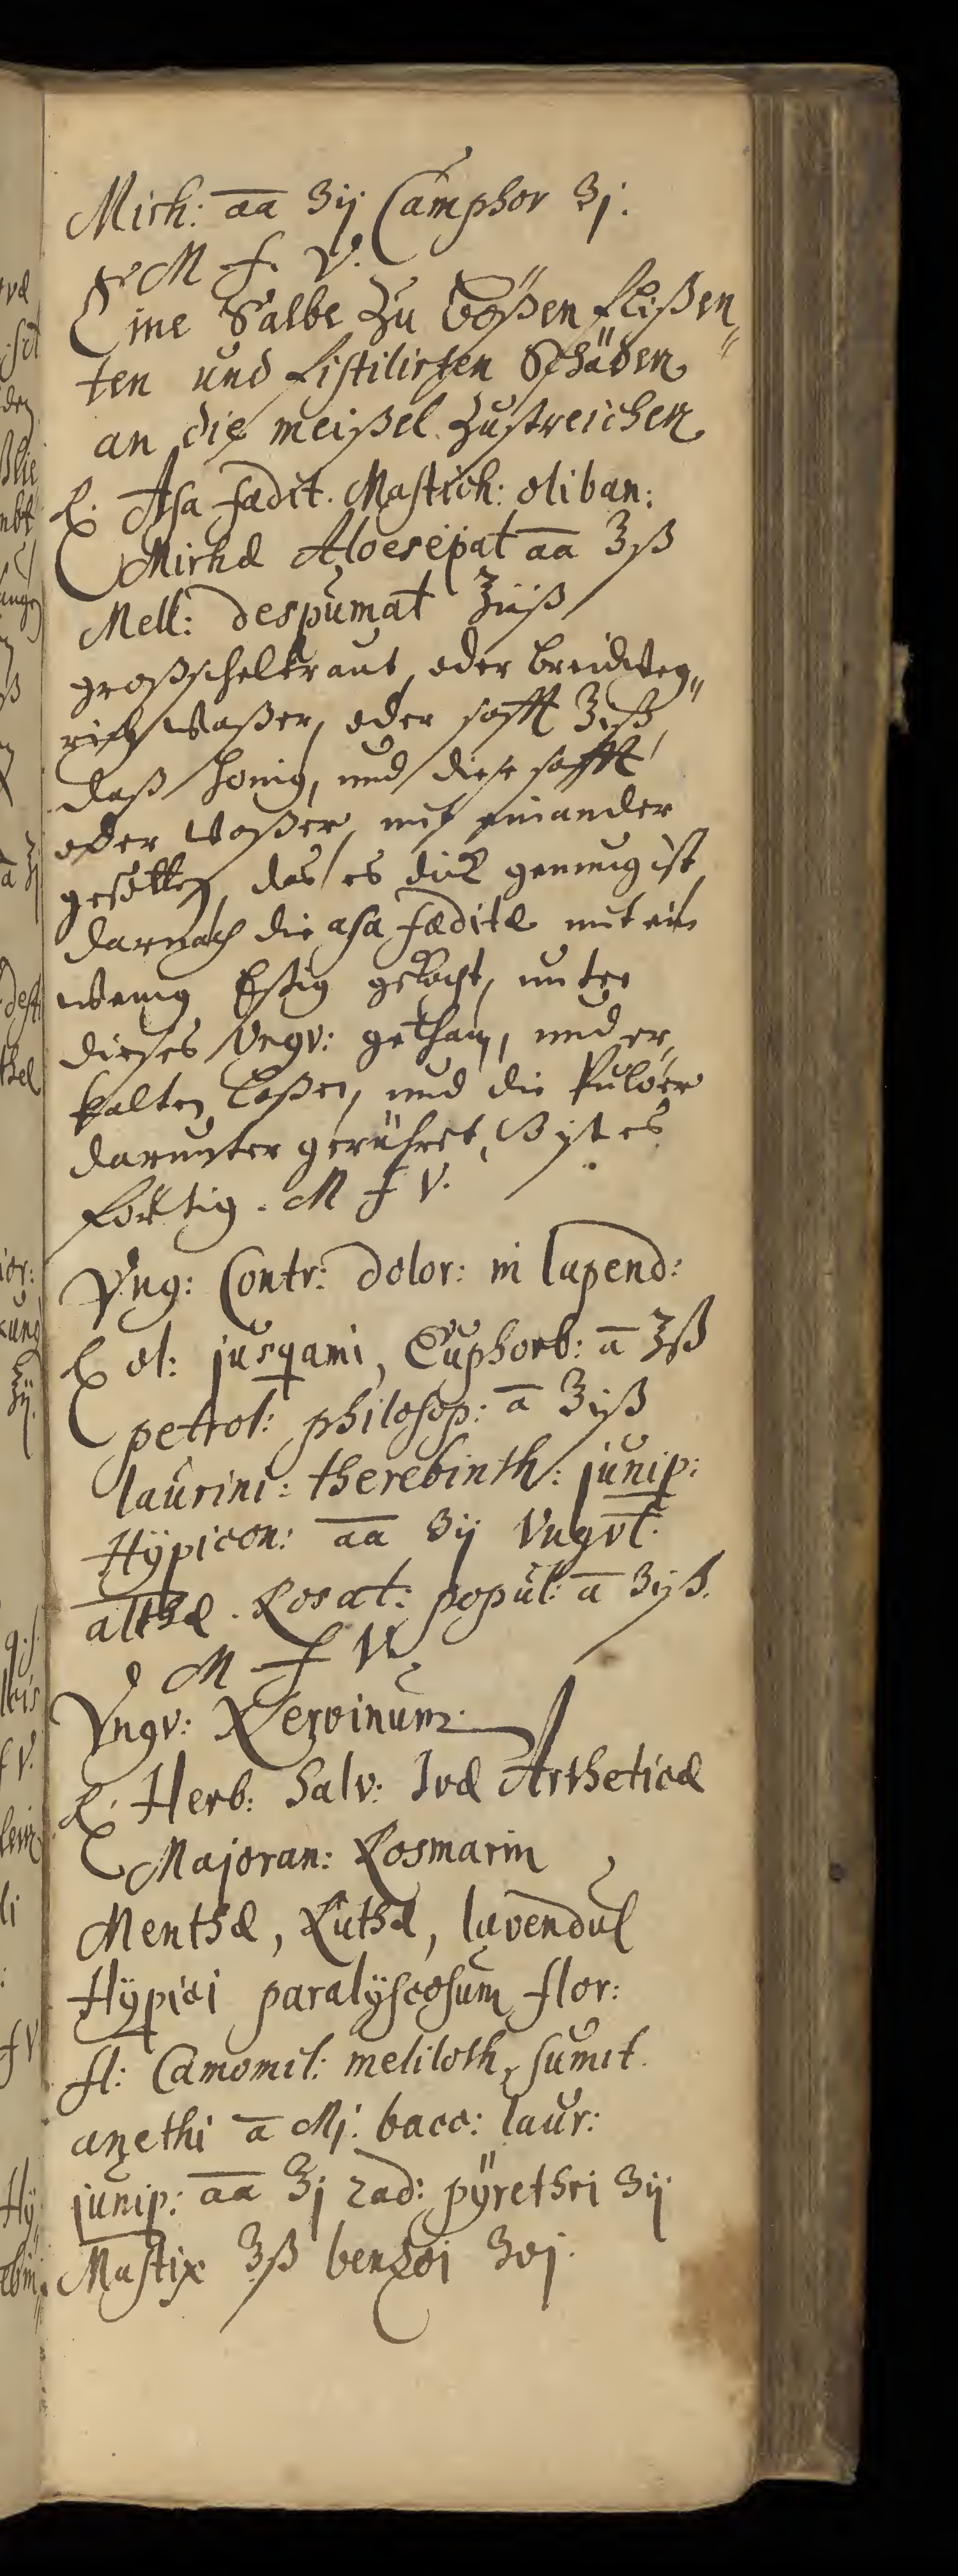 Mirh: aa ʒij Camphor ʒj.
M f. V.
Eine Salbe zu bößen fließen„
ten und fistilirten Schäden
an die meißel zustreichen
℞. Asa fædit. Mastich: oliban:
Mirhæ Aloesepat aa ʒß
Mell: despumat ℥iiß
großschelkraut, oder breidweg„
rich Waßer, oder safft ℥iß
daß honig, und diese safft
oder Waßer, mit einander
gesotten, das es dick genung ist
darnach die asa fæditæ mit ein
wenig Eßig gekocht, unter
dieses Vngv: gethan, und er
kalten laßen, und die Pulver
darunter gerühret, so ist es
fertig. M f V.
Vng: Contr: dolor: in lupend:
℞ ol: jusqami, Euphorb: a ℥ß
petrol: philosop: a ʒiß
laurini: therebinth: junip:
Hÿpicon: aa ʒij Vngvt:
althæ. Rosat: popul: a ʒijß.
M f V.
Vngv: Nervinum.
℞. Herb: Salv: Ivæ Artheticæ
Majoran: Rosmarin
Menthæ, Ruthæ, lavendul
Hÿpici paralÿscosum flor:
fl: Camomil: meliloth, sumit.
anethi a Mj: bacc: laur:
junip: aa ʒj rad: pÿrethri ʒij
Mastix ʒß benzoi ʒvj.